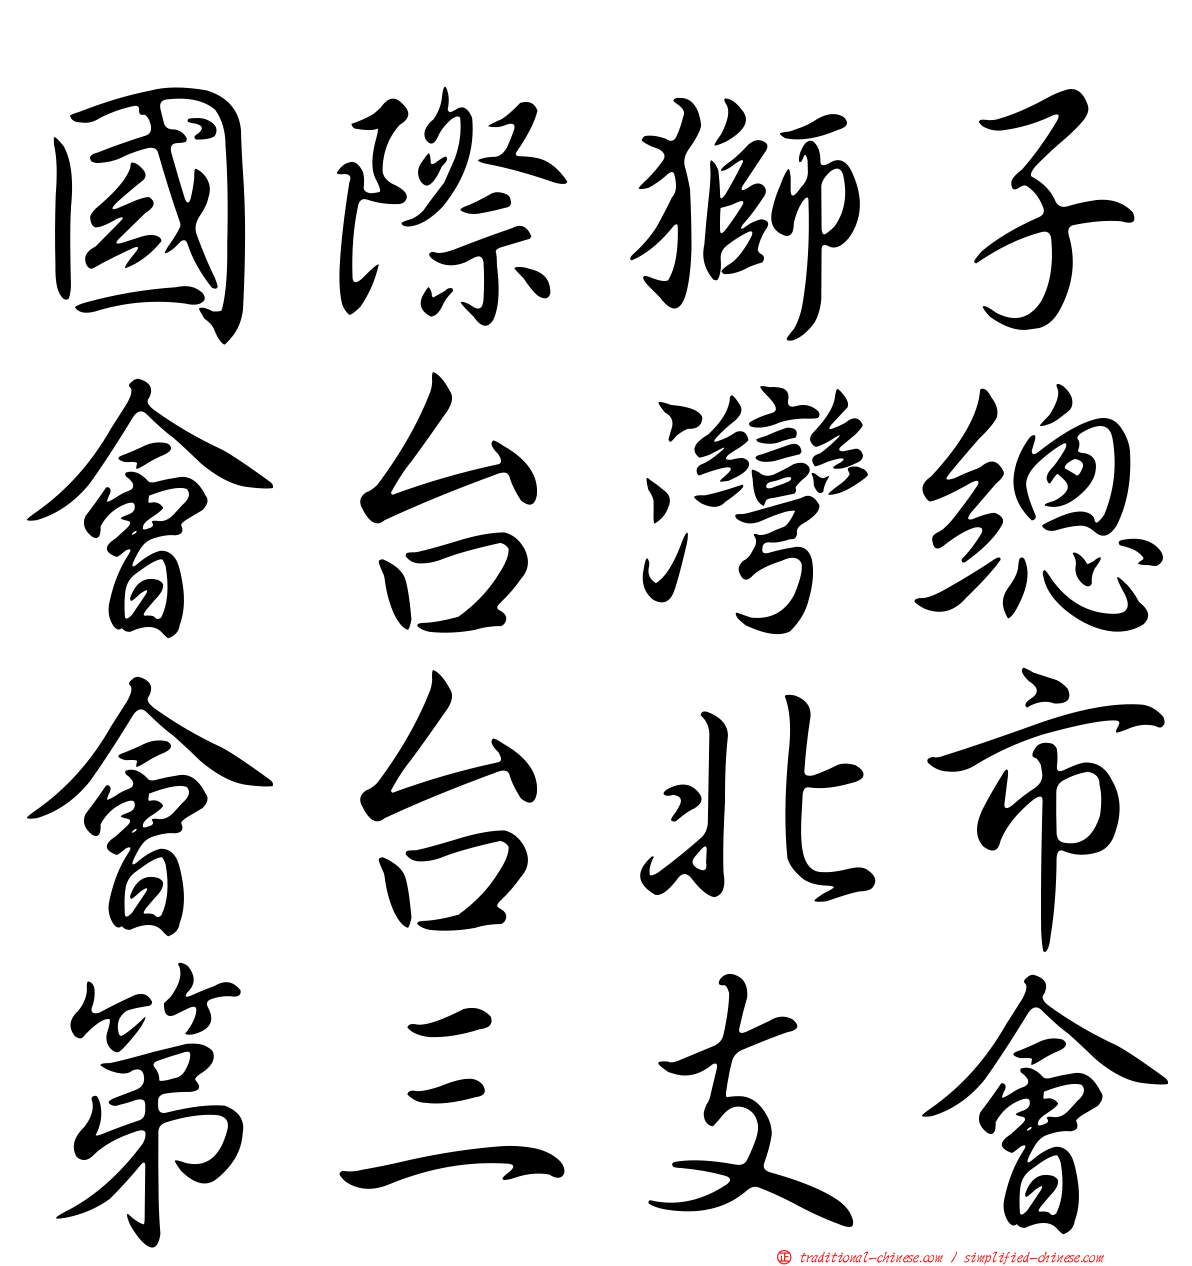 國際獅子
會台灣總
會台北市
第三支會
正 traditional-chinese.com / simplified-chinese.com